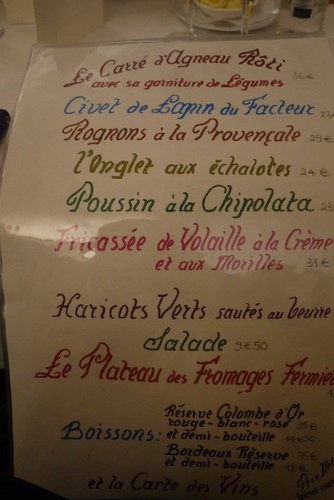 Le Carré d'Agneau Rôti
avec sa garniture de Légumes
Civet de Lapin du Facteur
Rognons à la Provençale
l'Onglet aux échalotes 24 €
Poussin à la Chipolata
Fricassée de Volaille à la Crème
et aux Morilles 31 €
Haricots Verts sautés au beurre
Salade 9€50
Le Plateau des Fromages Fermie
Réserve Colombe d'Or
rouge-blanc-rosé
Boissons: et demi-bouteille
Bordeaux Réserve
et demi-bouteille
et la Carte des Vins